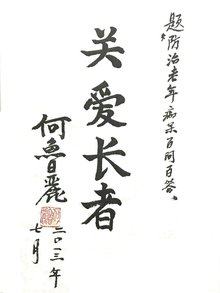 题防治老年病呆百问百答、
关爱长者
何鲁丽
二〇一三年
七月